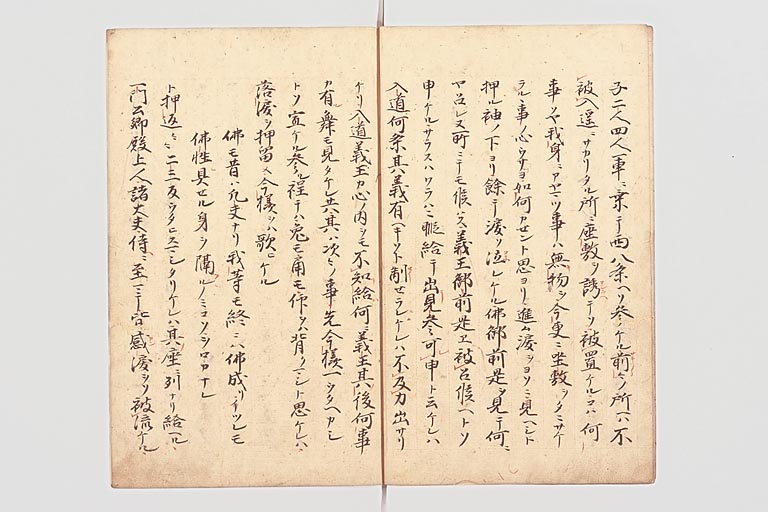 子二人四人一車ニ乗テ西八条ヘソ参ケル前々ノ所ヘハ不
被入遥ニサカリタル所ニ座敷ヲ誘テソ被置ケルコハ何
事ソヤ我身ニアヤマツ事ハ無物ヲ今更ニ坐敷ヲタニサケ
ラル事ノ心ウサヨ如何カセント思ヨリ進ム涙ヲヨソニ見ヘシト
押ル袖ノ下ヨリ餘テ涙ソ泣レケル佛御前是ヲ見テ何ニ
ヤ召レヌ所ニテモ候ハス義王御前是エ被召候ヘトソ
申ケルサラスハワラハニ暇給テ出見参ニ可申ト云ケレハ
入道何条其義有ヘキソト制セラレケレハ不及力出サリ
ケリ入道義王カ心ノ内ヲモ不知給何ニ義王其後何事
カ有舞モ見タケレ共其ハ次々ノ事先今様一ツウタヘカシ
トソ宣ケル参ル程テハ兎モ角モ仰ヲハ背クマシト思ケレハ
落涙ヲ押留メ今様ヲハ歌ヒケル
佛モ昔ハ凡夫ナリ我等モ終ニハ佛成リイツレモ
佛性具セル身ヲ隔ルノミコソヲロカナレ
ト押返々々二三反ウタヒスマシタリケレハ其座ニ列ナリ給ヘル
一門公卿殿上人諸大夫侍ニ至マテ皆感涙ヲソ被流ケル